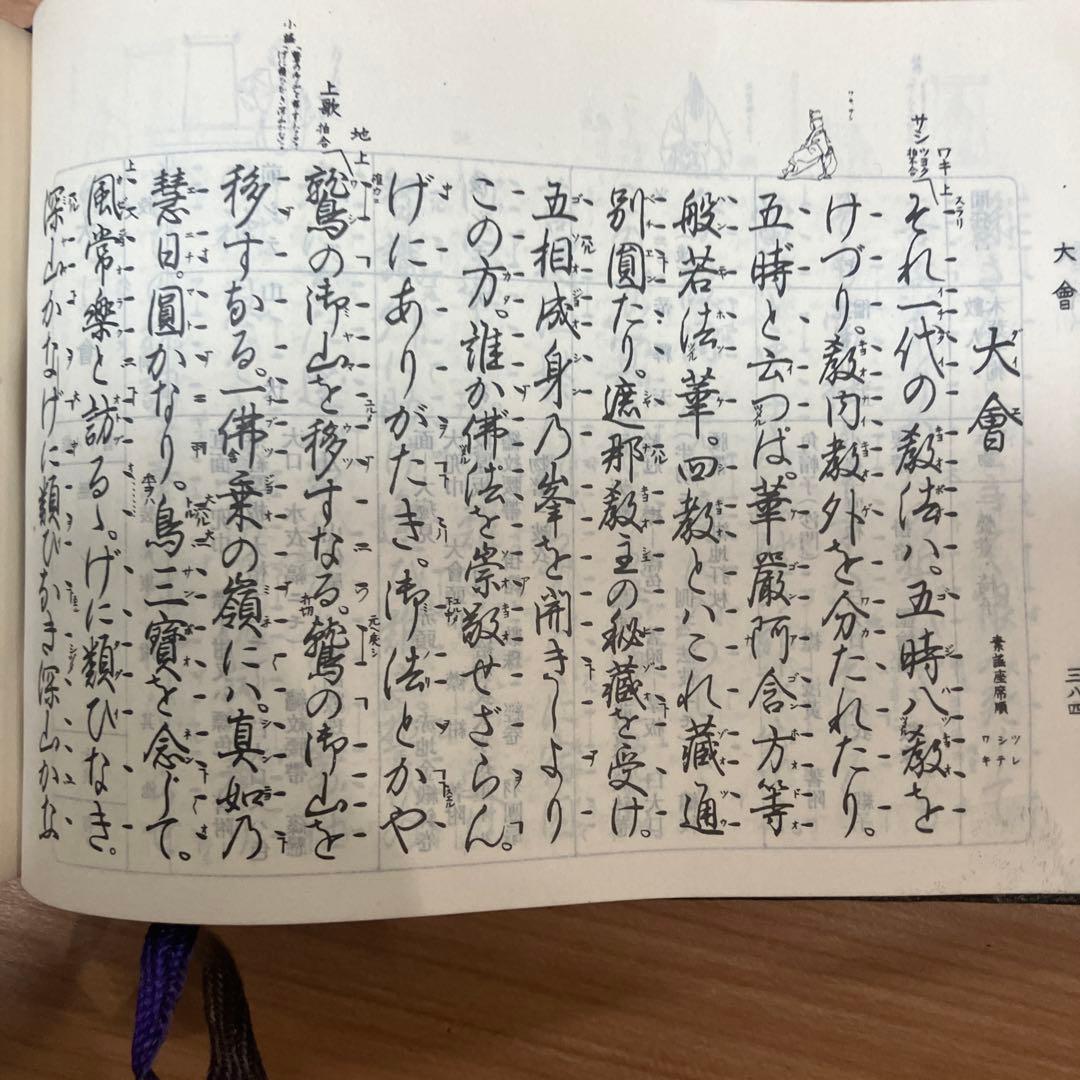 大會
三八四
大會
素謡座席順
ツレ
シテ
ワキ
ワキ上
サシ
それ一代の教法ハ。五時八教を
けづり。教内教外を分たれたり。
五時と云つぱ。華嚴阿含方等
般若法華。四教とハこれ藏通
別圓たり。遮那教主の秘藏を受け。
五相成身乃峯を開きしより
この方。誰か佛法を崇敬せざらん。
げにありがたき。御法とかや
地上
上歌
拍合
小謡
鷲の御山を移すなる。鷲の御山を
移すなる。一佛乗の嶺にハ。真如乃
慧日。圓かなり。鳥三寳を念じて。
風常樂と訪るゝ。げに類びなき。
深山かなげに類びなき深山かな